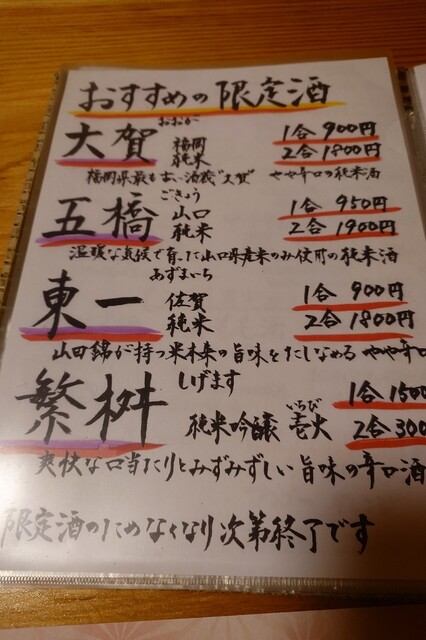 おすすめの限定酒
おおが
大賀 福岡 純米 1合 900円 2合 1800円
福岡県最も古い酒蔵"大賀" やや辛口の純米酒
ごきょう
五橋 山口 純米 1合 950円 2合 1900円
温暖な気候で育った山口県産米のみ使用の純米酒
あずまいち
東一 佐賀 純米 1合 900円 2合 1800円
山田錦が持つ米本来の旨味をたしなめる やや辛口
しげます
繁桝 純米吟醸 壱火 いちび 1合 1500 2合 300
爽快な口当たりとみずみずしい旨味の辛口酒
限定酒のためなくなり次第終了です